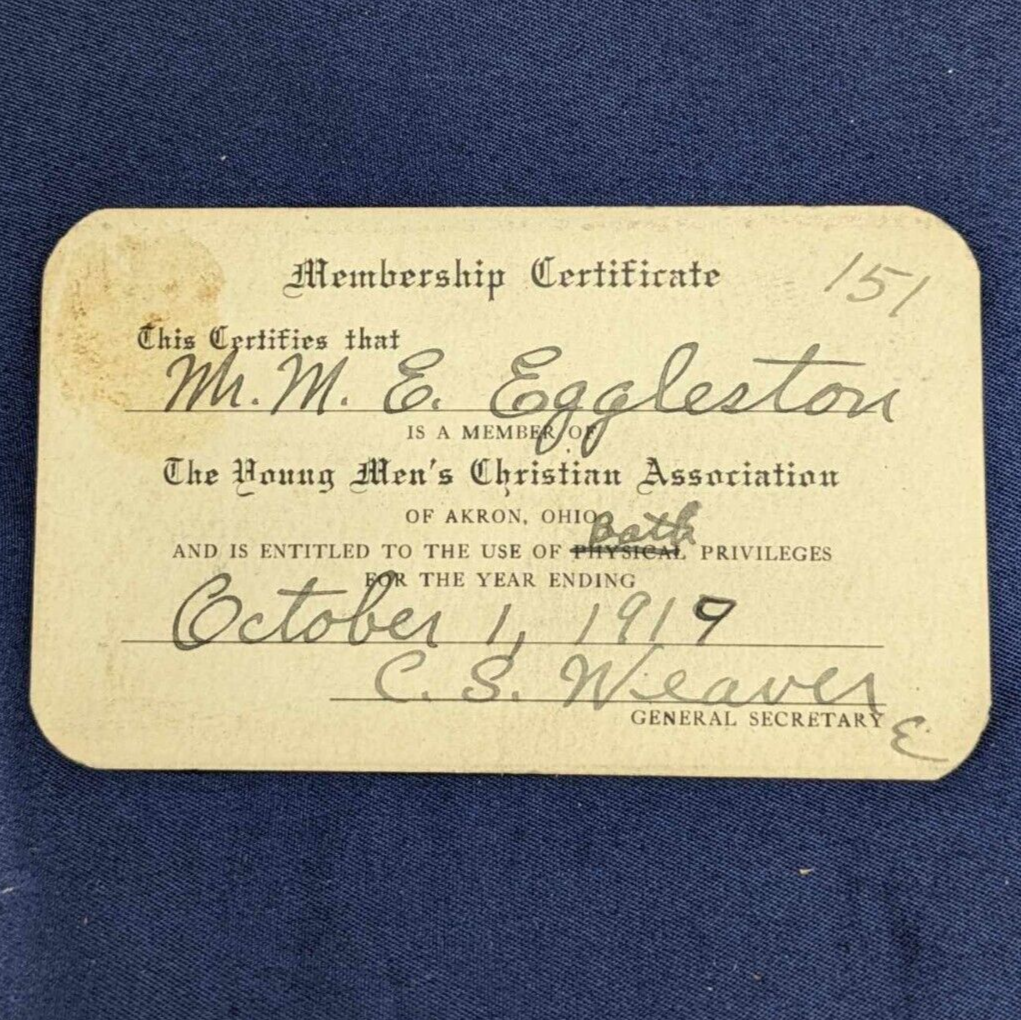 Membership Certificate
151
This Certifies that
Mr. M. E. Eggleston
IS A MEMBER OF
The Young Men's Christian Association
OF AKRON, OHIO
bath
AND IS ENTITLED TO THE USE OF PHYSICAL PRIVILEGES
FOR THE YEAR ENDING
October 1, 1919
C. S. Weaver
GENERAL SECRETARY
E